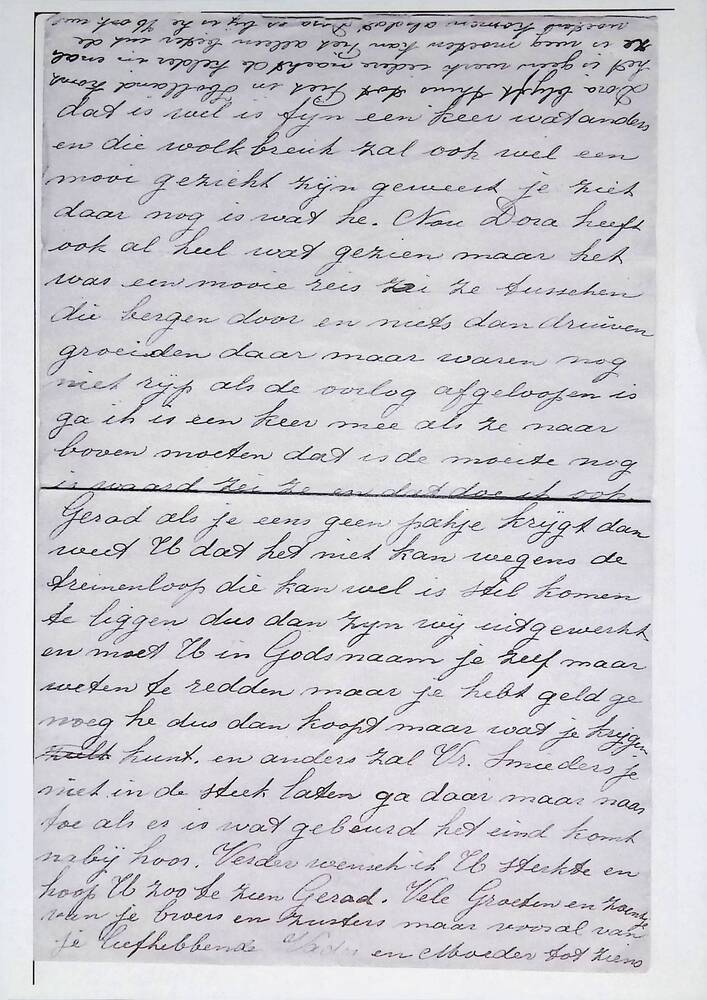 Dora blijft thuis tot Piet in Holland komt
het is geen werk iedere nacht de kelder in maar
ze is weg moeten kan het alleen
dat is wel is fijn een keer wat anders
en die wolkbreuk zal ook wel een
mooi gezicht zijn geweest je ziet
daar nog is wat he. Nou Dora heeft
ook al heel wat gezien maar het
was een mooie reis zei ze tusschen
die bergen door en niets dan druiven
groeiden daar maar waren nog
niet rijp als de oorlog afgeloopen is
ga ik is een keer mee als ze naar
boven moeten dat is de moeite nog
is waard zei ze en dat doe ik ook.
Gerad als je eens geen pakje krijgt dan
weet U dat het niet kan wegens de
treinenloop die kan wel is stil komen
te liggen dus dan zijn wij uitgewerkt
en moet U in Godsnaam je zelf maar
weten te redden maar je hebt geld ge
noeg he dus dan koopt maar wat je krijgen
zult kunt. en anders zal Vr. Smeeders je
niet in de steek laten ga daar maar naar
toe als er is wat gebeurd het eind komt
nabij hoor. Verder wensch ik U sterkte en
hoop U zoo te zien Gerad. Vele Groeten en zoentjes
van je broers en zusters maar vooral van
je liefhebbende Vader en Moeder tot ziens